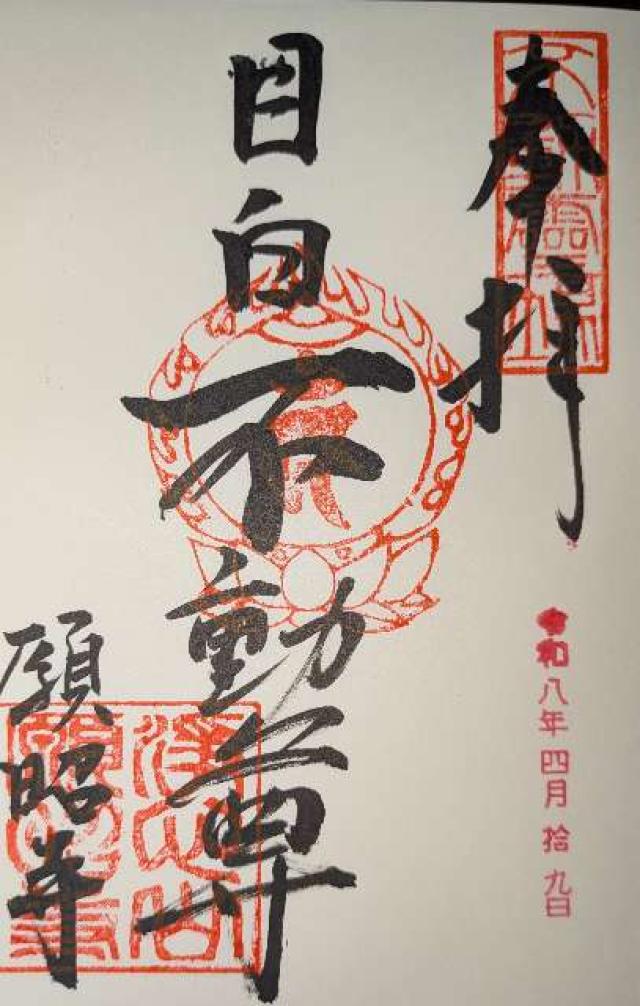 奉拝
令和八年四月拾九日
目白不動尊
願昭寺